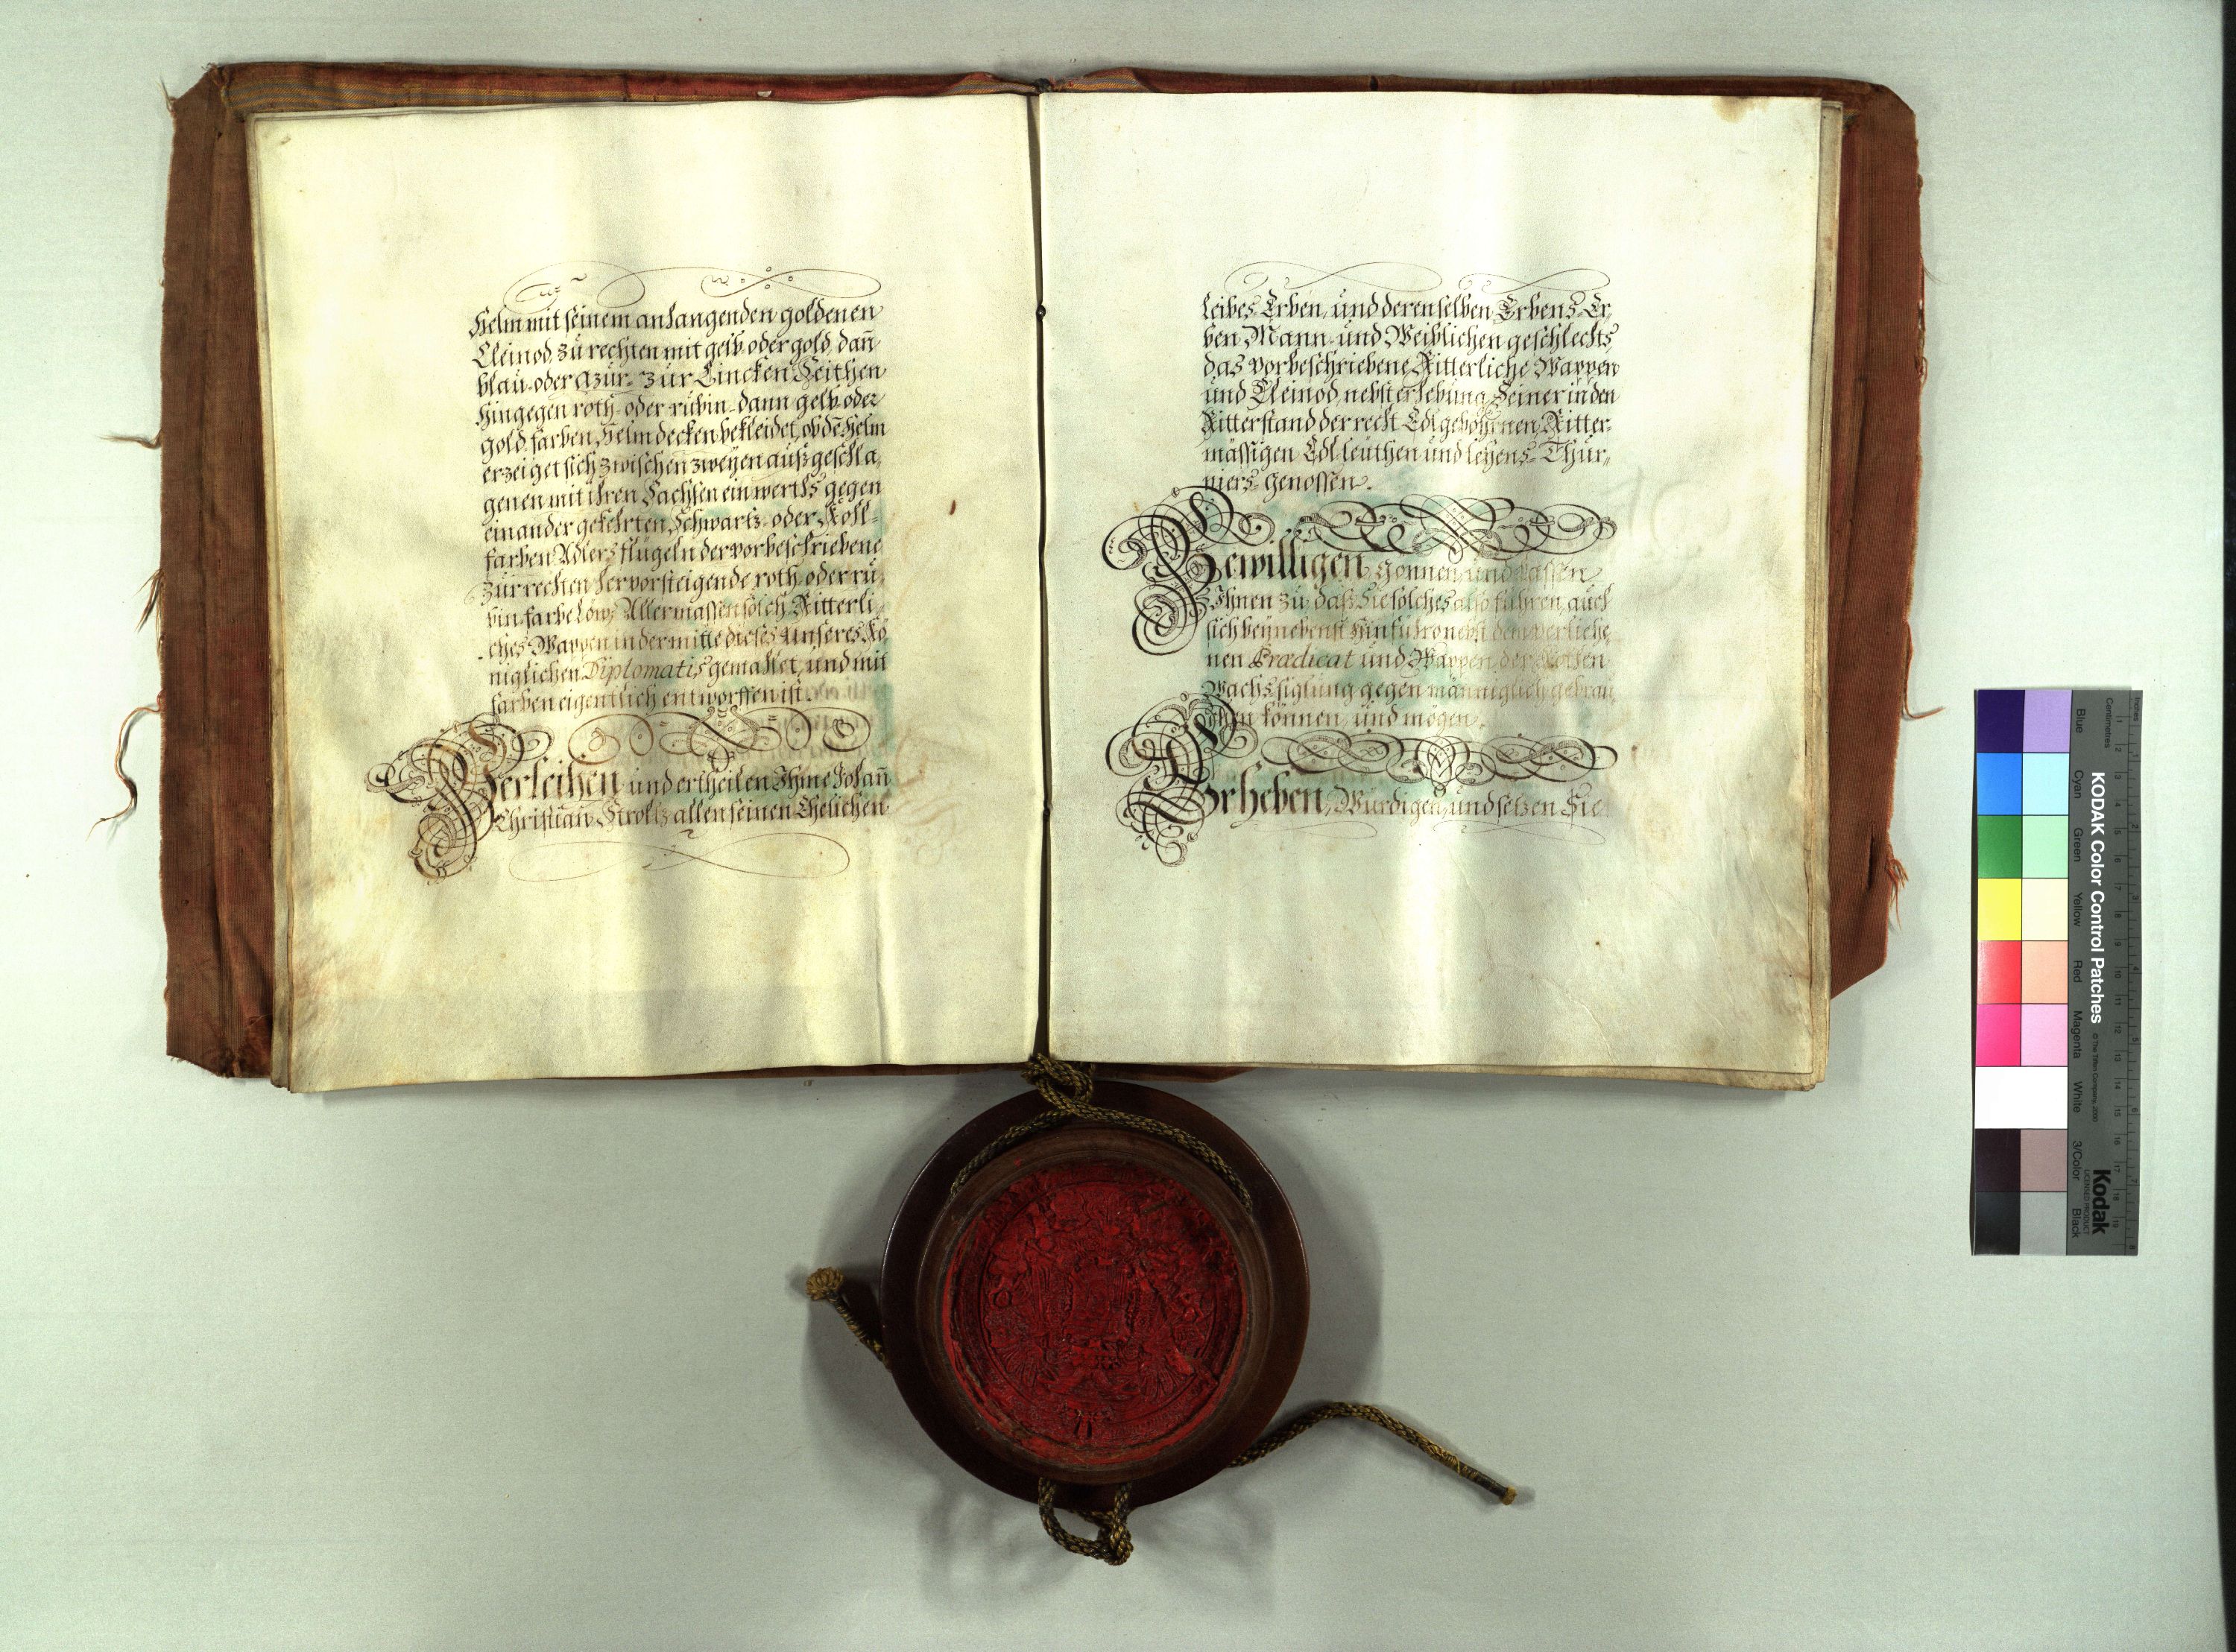 Helm mit seinem anhangenden goldenen
Cleinod, zu rechten mit gelb, oder gold, dañ
blau- oder Azur, zur Lincken Seithen
hingegen roth- oder rubin- dann gelb, oder
gold farben Helmdecken bekleidet, ob dē Helm
erzeiget sich zwischen zweyen außgeschla,
genen mit ihren Sachsen einwerths gegen
einander gekehrten Schwartz- oder Kohl-
farben Adlersflügeln der vorbeschriebene
zur rechten hervorsteigende roth- oder ru,
bin-farbe Löw; Allermassen solch Ritterli,
ches Wappen in der mitte dieses Unseres Kö
niglichen Diplomatis gemahlet, und mit
farben eigentlich entworffen ist.
Verleihen und ertheilen Ihme Johañ
Christian Strohz allen seinen Ehelichen
Leibes Erben, und derenselben Erbens Er,
ben Mann- und Weiblichen geschlechts
das vorbeschriebene Ritterliche Wappen
und Cleinod, nebst erhebung Seiner in den
Ritterstand der recht Edlgebohrnen, Ritter-
mässigen Edl-leuthen und Lehens- Thur,,
niers- genossen.
Bewilligen, gönnen, und lassen
Ihnen zu, daß Sie solches also führen, auch
sich beynebenst hinführo nebst dem verliehe,
nen Prædicat und Wappen, der Rothen
Wachssiglung gegen männiglich gebrau,
chen können, und mögen.
Erheben, Würdigen, und setzen Sie
Inches
Centimetres
KODAK Color Control Patches
© The Tiffen Company, 2000
Kodak
LICENSED PRODUCT
Blue
Cyan
Green
Yellow
Red
Magenta
White
3/Color
Black